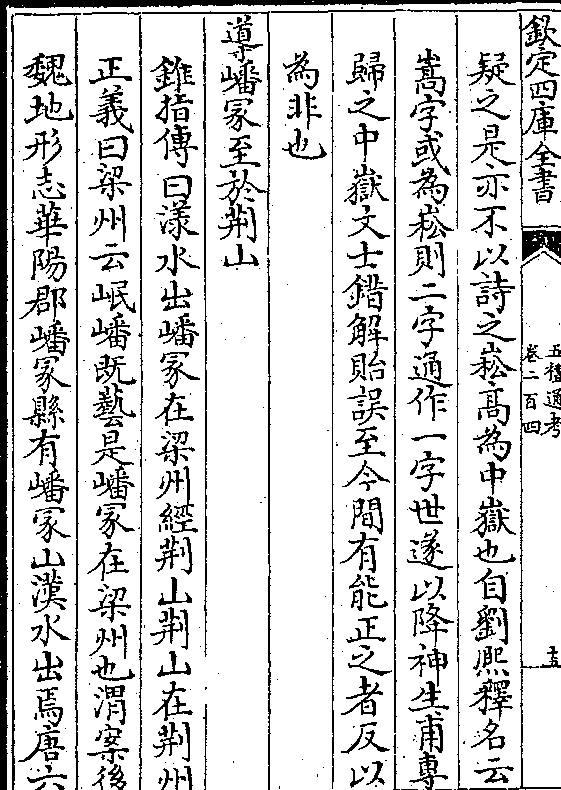 欽定四庫全書
五禮通考
卷二百四
十五
疑之是亦不以詩之崧高為中嶽也自劉熙釋名云
嵩字或為崧則二字通作一字世遂以降神生甫專
歸之中嶽文士錯解貽誤至今間有能正之者反以
為非也
導嶓冢至於荆山
錐指傳曰漾水出嶓冢在梁州經荆山荆山在荆州
正義曰梁州云岷嶓既藝是嶓冢在梁州也渭案後
魏地形志華陽郡嶓冢縣有嶓冢山漢水出焉唐六